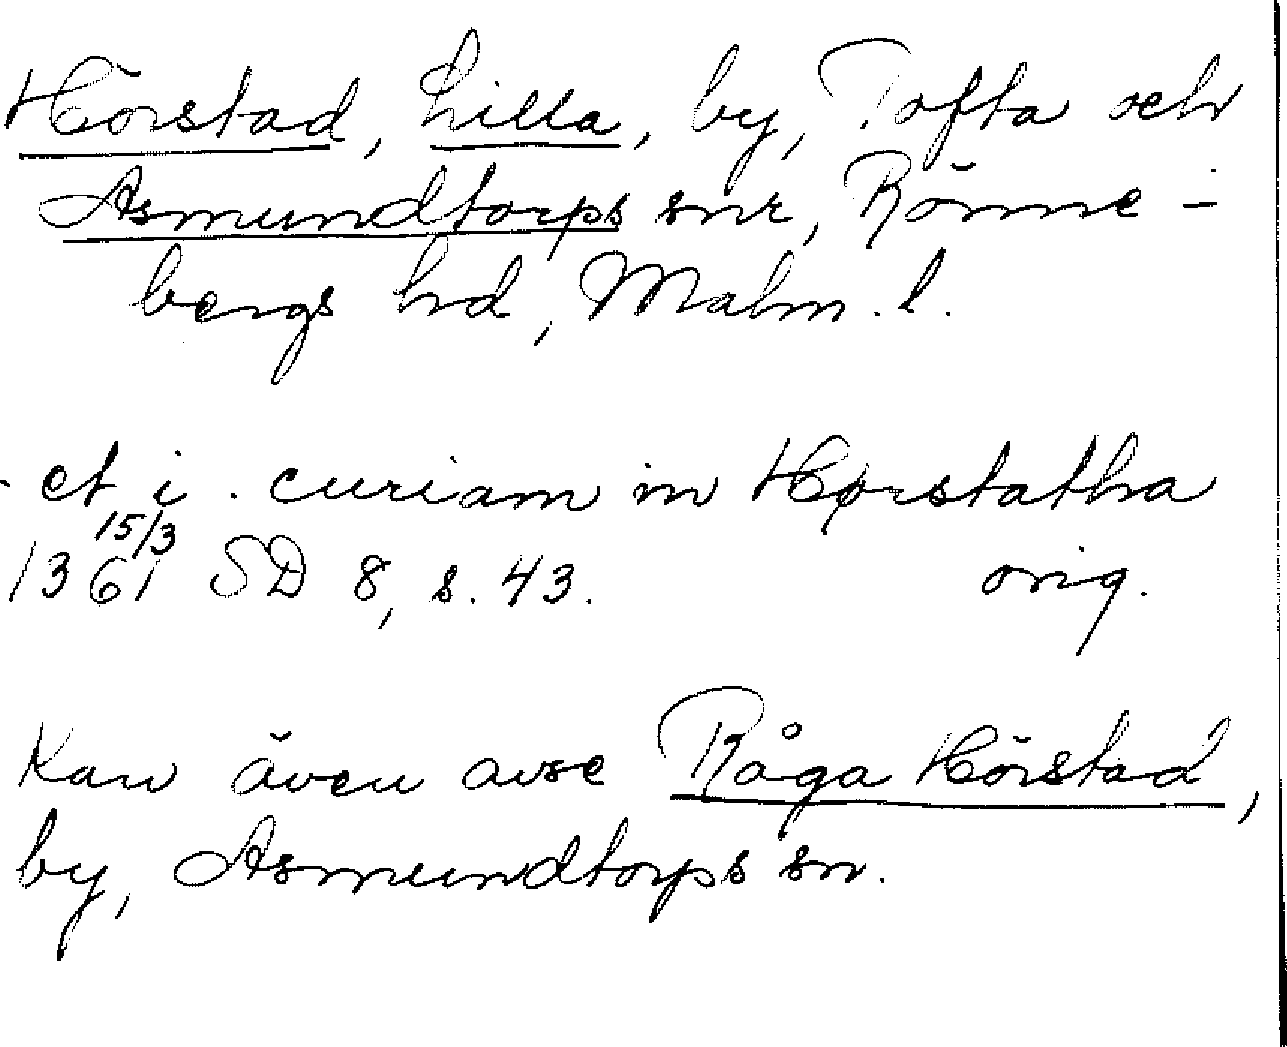 Hörstad, Lilla, by, Tofta och
Asmundtorps snr, Rönne-
bergs hd, Malm. l.
- et i. curiam in Hørstatha
15/3
1361 SD 8, s. 43. orig.
Kan även avse Råga Hörstad,
by, Asmundtorps sn.